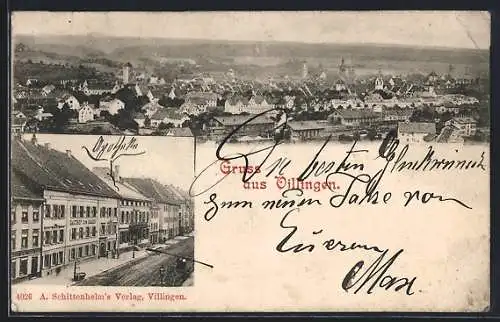 Apotheke
Gruss
aus Villingen.
Die besten Glückwünsch
zum neuen Jahre von
Eurem
Max
4026 A. Schittenhelm's Verlag, Villingen.